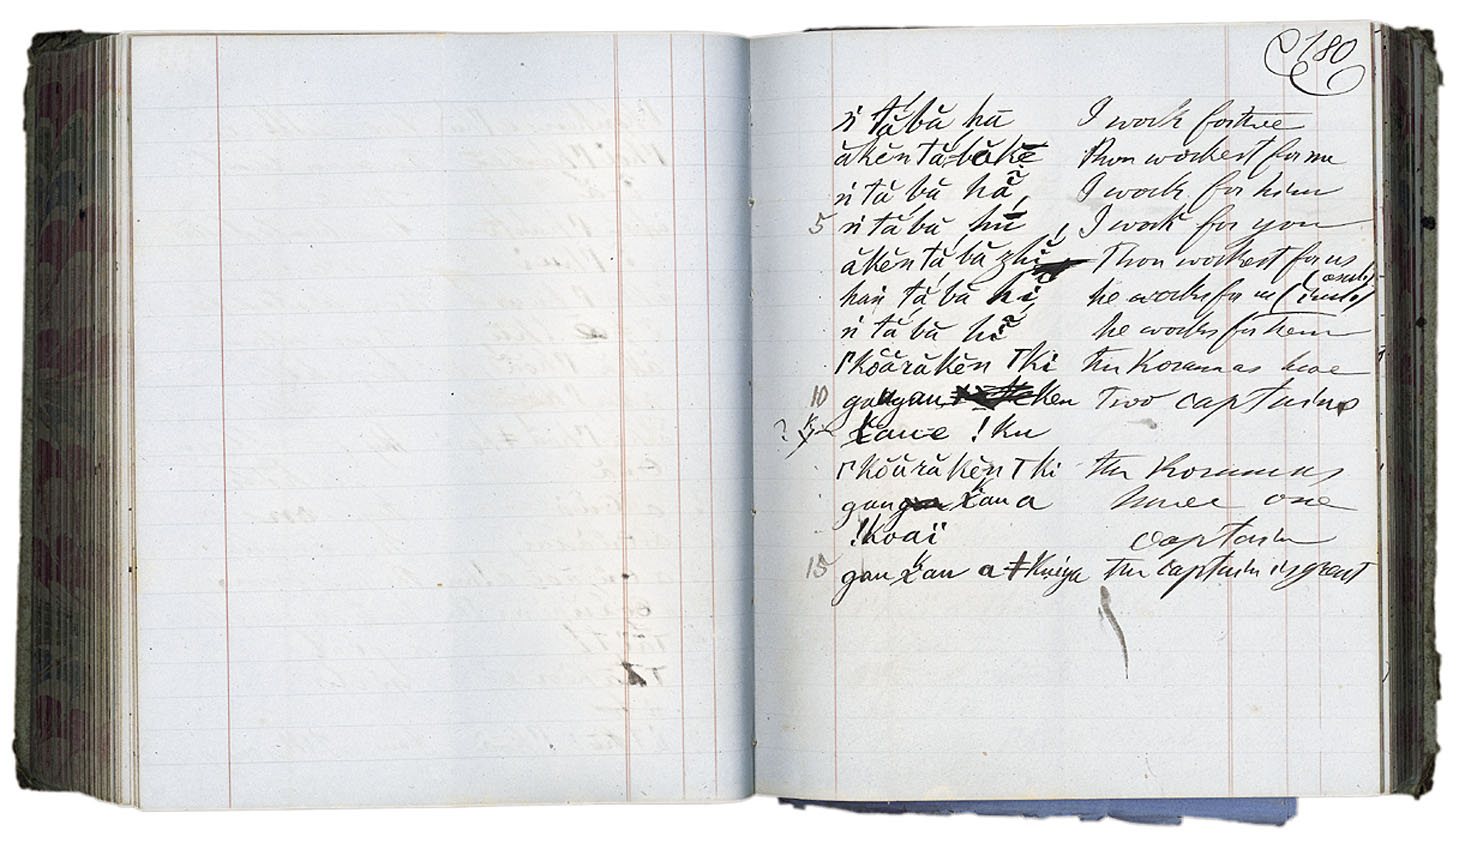 180
ń tắbŭ hū I work for thee
ăkĕn tă bŭkē Thou workest for me
ń tă bŭ hă I work for him
5 ń tă bŭ hū, I work for you
ăkĕn tă bŭ Thou workest for us
(excl:)
hań tă bŭ hi he works for us (incl:)
ń tă bŭ hĭ he works for them
⎾kŏărăkĕn ⎾ki the Korannas have
10 gaugau ken Two captains
? x̌aue !ku
⎾kŏărăkĕn ⎾ki the Korannas
gau x̌au a have one
!koaï captain
15 gau x̌au a ǂkuiya the captain is great